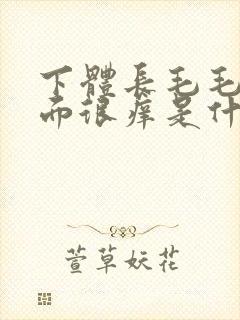 下體長毛毛
而很痒是什
萱草妖花